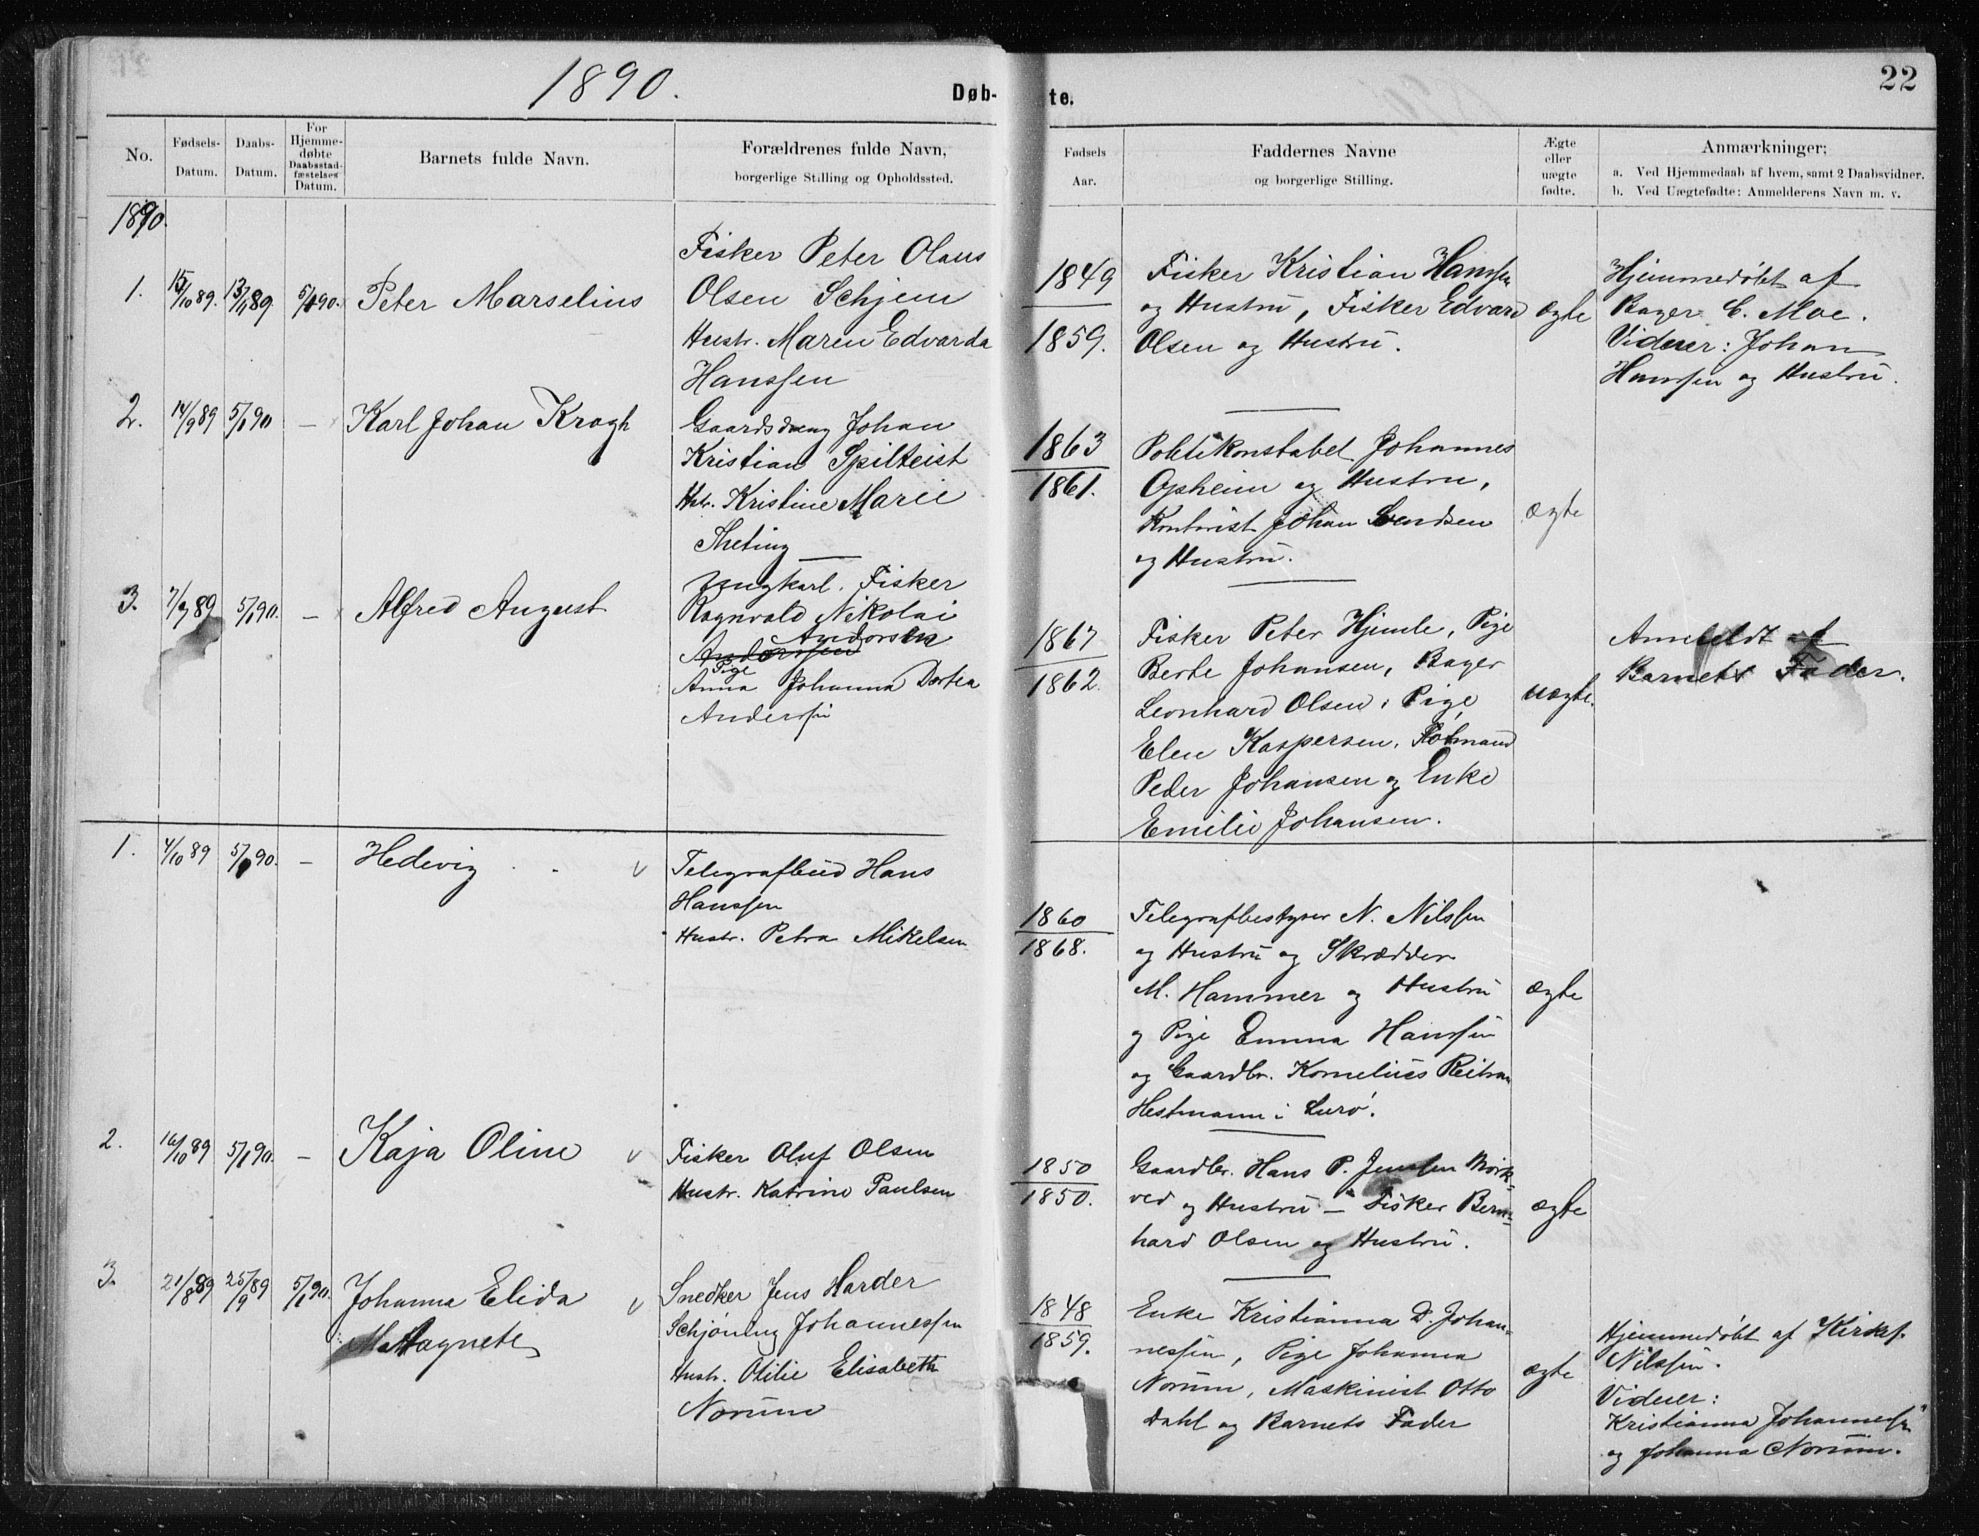 1890.
Døb-
te.
22
No.
Fødsels-
Datum.
Daabs-
Datum.
For
Hjemme-
døbte
Daabsstad-
fæstelses
Datum.
Barnets fulde Navn.
Forældrenes fulde Navn,
borgerlige Stilling og Opholdssted.
Fødsels
Aar.
Faddernes Navne
og borgerlige Stilling.
Ægte
eller
uægte
fødte.
Anmærkninger;
a. Ved Hjemmedaab af hvem, samt 2 Daabsvidner.
b. Ved Uægtefødte: Anmelderens Navn m. v.
1890.
1.
15/10 89.
13/11 89
5/1 90.
Peter Marselius
Fisker Peter Olaus
Olsen Schjem
Hustr. Maren Edvarda
Hanssen
1849
1859.
Fisker Kristian Hanssen
og Hustru, Fisker Edvard
Olsen og Hustru.
ægte
Hjemmedøbt af
Bager C. Moe.
Vidner: Johan
Hanssen og Hustru.
2.
14/9 89
5/1 90
—
Karl Johan Krogh
Gaardsdreng Johan
Kristian Spilteist
Hstr. Kristine Marie
1863
1861.
Politikonstabel Johannes
Opheim og Hustru,
Kontorist Johan Svendsen
og Hustru.
ægte
3.
7/9 89
5/1 90.
—
Alfred August
Ungkarl. Fisker
Ragnvald Nikolai
Anderssen
Anderssen
Pige
Anna Johanna Dortea
Anderssen
1867
1862.
Fisker Peter Hjemle, Pige
Berte Johansen, Bager
Leonhard Olsen, Pige
Elen Kaspersen,
Peder Johansen og Enke
Emilie Johansen.
uægte.
Anmeldt af
Barnets Fader.
1.
4/10 89
5/1 90.
—
Hedevig
Telegrafbud Hans
Hanssen
Hustr. Petra Mikelsen
1860
1868.
Telegrafbestyrer N. Nilssen
og Hustru og Skrædder
M. Hammer og Hustru
og Pige Emma Hanssen
og Gaardbr. Kornelius
Hestmann i Lurø.
ægte
2.
16/10 89
5/1 90.
—
Kaja Oline
Fisker Oluf Olsen
Hustr. Katrine Paulsen
1850
1850.
Gaardbr. Hans P. Jenssen Mørk-
ved og Hustru — Fisker Bern-
hard Olsen og Hustru.
ægte
3.
21/8 89
25/9 89
5/1 90.
Johanna Elida
Magnete
Snedker Jens Harder
Schjøning Johannessen
Hustr. Otilie Elisabeth
Norum
1848
1859.
Enke Kristianna D. Johan-
nessen, Pige Johanna
Norum, Maskinist Otto
Dahl og Barnets Fader
ægte
Hjemmedøbt af Kirkes.
Nilssen.
Vidner:
Kristianna Johannessen
og Johanna Norum.